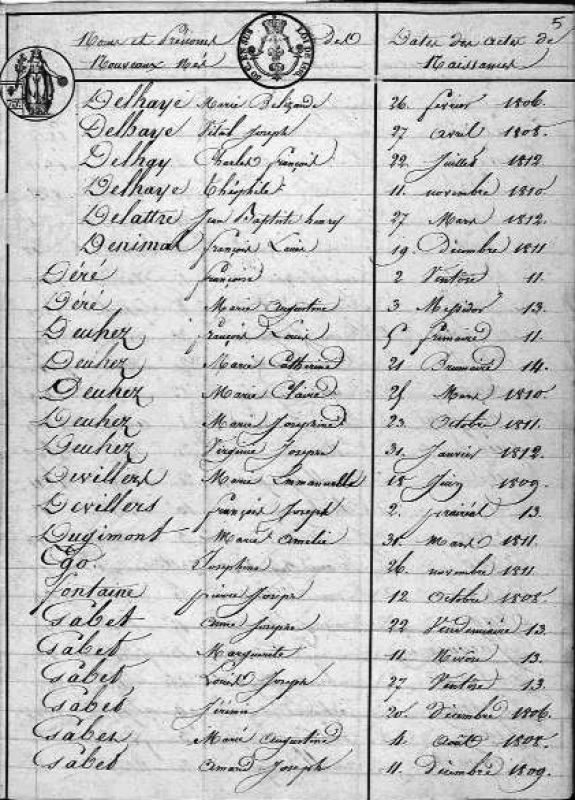 5
Noms et Prénoms des Dates des actes de
Nouveaux Nés Naissances
Delhaye Marie Belzande 26 février 1806.
Delhaye Vital Joseph 27 avril 1808.
Delhay Charles françois 22 Juillet 1812
Delhaye Théophile 11 novembre 1810
Delattre Jean Baptiste henry 27 Mars 1812.
Denimal françois Louis 19 Décembre 1811
Déré françoise 2 Ventôse 11.
Déré Marie augustine 3 Messidor 13.
Deuhez françois Louis 5 frimaire 11.
Deuhez Marie Catherine 21 Brumaire 14.
Deuhez Marie Claire 25 Mars 1810.
Deuhez Marie Josephine 23 Octobre 1811.
Deuhez Virginie Joseph 31 Janvier 1812.
Devillers Marie Emmanuelle 18 Juin 1809.
Devillers françois Joseph 2 prairial 13.
Dugimont Marie amelie 31 Mars 1811.
Ego. Josephine 26 novembre 1811.
fontaine pierre Joseph 12 Octobre 1808
Gabet anne Joseph 22 Vendemiaire 13.
Gabet Marguerite 11 Nivôse 13.
Gabet Louis Joseph 27 Ventôse 13.
Gabet 20 Décembre 1806.
Gabet Marie augustine 4 août 1808.
Gabet amand Joseph 11 Décembre 1809.